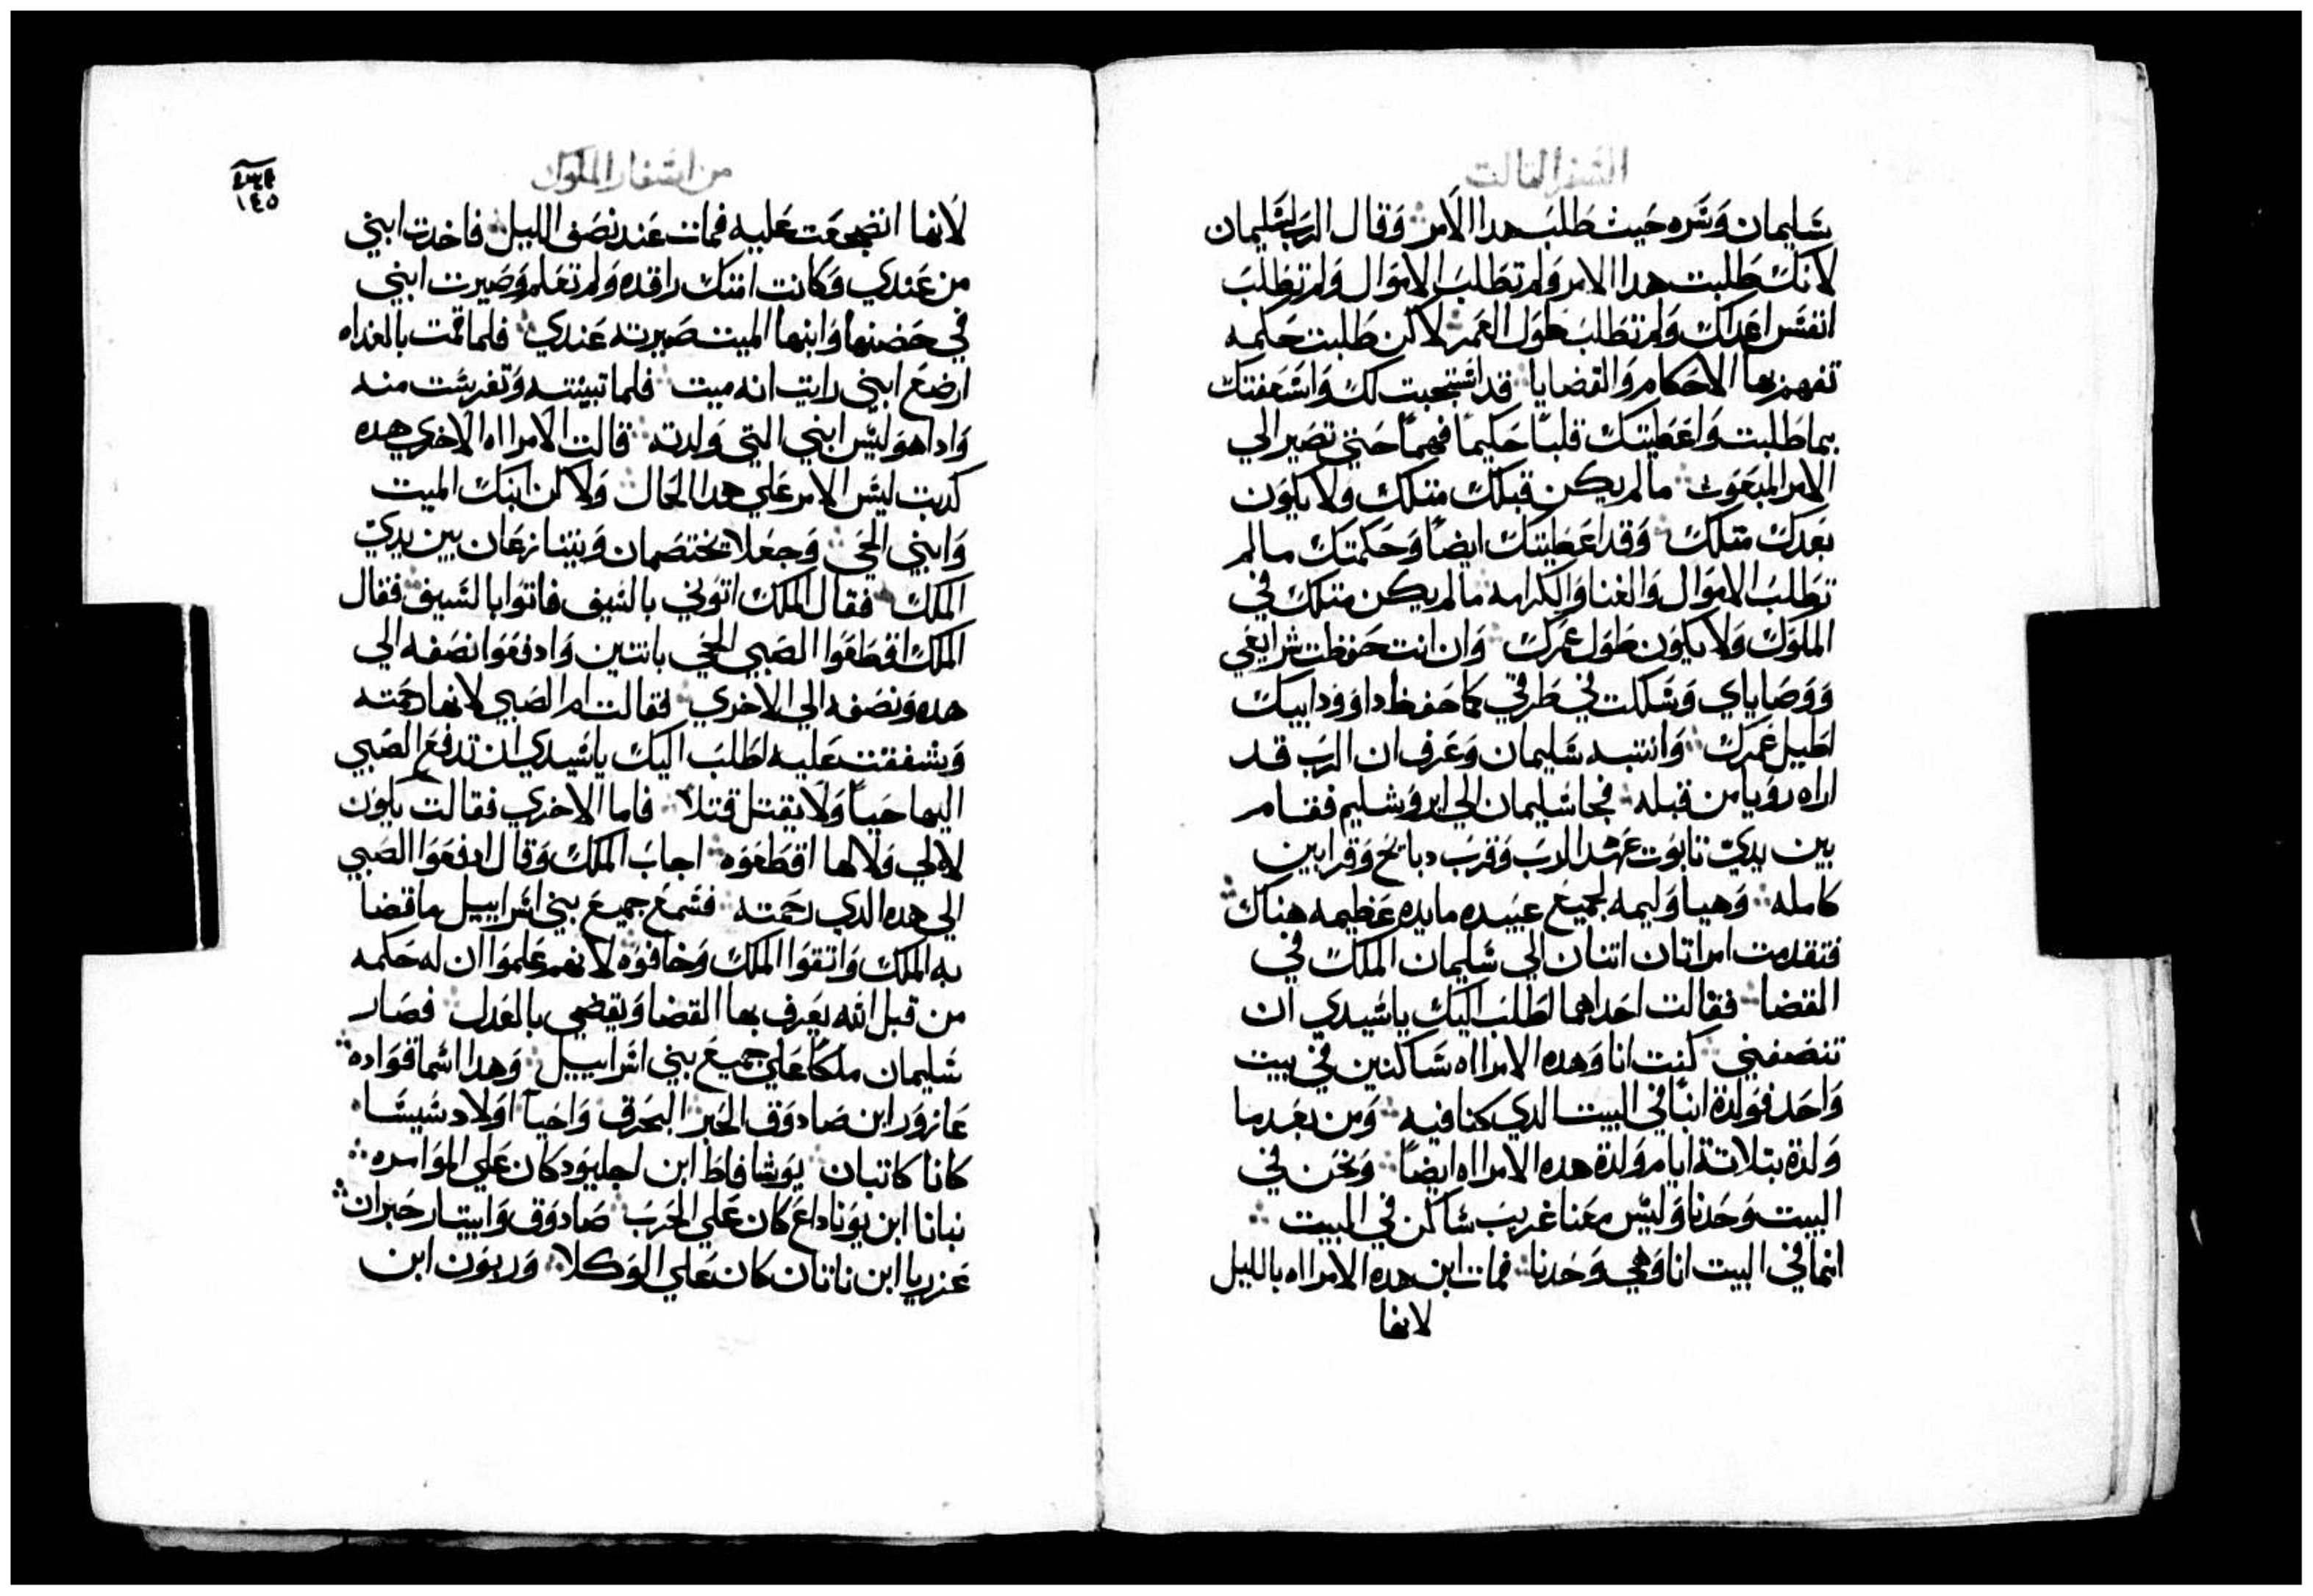 السفر التالت
سليمان وسره حيث طلب هدا الامر وقال الرب لسليمان
لانك طلبت هدا الامر ولم تطلب الاموال ولم تطلب
انفس اعداك ولم تطلب طول العمر لاكن طلبت حكمه
تفهم بها الاحكام والقضايا قد استجبت لك واسعفتك
بما طلبت واعطيتك قلبًا حكيمًا فهيمًا حتي تصير الي
الامر المبعوث ما لم يكن قبلك متلك ولا يكون
بعدك متلك وقد اعطيتك ايضًا وحكمتك مالم
تطلب الاموال والغنا والكرامه ما لم يكن متلك في
الملوك ولا يكون طول عمرك وان انت حفظت شرايعي
ووصاياي وسلكت في طرقي كما حفظ داوود ابيك
اطيل عمرك وانتبه سليمان وعرف ان الرب قد
اراه رويا من قبله فجا سليمان الي ايروشليم فقام
بين يدي تابوت عهد الرب وقرب دبايح وقرابين
كامله وهيا وليمه لجميع عبيده مايده عظيمه هناك
فتقدمت امراتان اتنان الي سليمان الملك في
القضا فقالت احداهما اطلب اليك ياسيدي ان
تنصفني كنت انا وهده الامراه ساكنين في بيت
واحد فولدة ابنًا في البيت الدي كنا فيه ومن بعد ما
ولدة بتلاتة ايام ولدة هده الامراه ايضًا ونحن في
البيت وحدنا وليس معنا غريب ساكن في البيت
انما في البيت انا وهي وحدنا فمات ابن هده الامراه بالليل
لانها
من اسفار الملوك
١٤٥
لانها انضجعت عليه فمات عند نصف الليل فاخدت ابني
من عندي وكانت امتك راقده ولم تعلم وصيرت ابني
في حضنها وابنها الميت صيرته عندي فلما قمت بالغداه
ارضع ابني رايت انه ميت فلما تبينته وتفرست منه
وادا هو ليس ابني التي ولدته قالت الامراه الاخري هده
كدبت ليس الامر علي هدا الحال ولاكن ابنك الميت
وابني الحي وجعلا يختصمان ويتنازعان بين يدي
الملك فقال الملك اتوني بالسيف فاتوا بالسيف فقال
الملك اقطعوا الصبي الحي باتنين وادفعوا نصفه الي
هده ونصفه الي الاخري فقالت ام الصبي لانها رحمته
وشفقت عليه اطلب اليك ياسيدي ان تدفع الصبي
اليها حيًا ولا يقتل قتلا فاما الاخري فقالت يكون
لا لي ولا لها اقطعوه اجاب الملك وقال ادفعوا الصبي
الي هده الدي رحمته فسمع جميع بني اسراييل ما قضا
به الملك واتقوا الملك وخافوه لانهم علموا ان له حكمه
من قبل الله يعرف بها القضا ويقضي بالعدل فصار
سليمان ملكًا علي جميع بني اسراييل وهدا اسما قواده
عازور ابن صادوق الحبر البحرف واحيا اولاد شيشا
كانا كاتبان يوشافاط ابن اجليود كان علي الموامره
نبانا ابن يوناداع كان علي الحرب صادوق وابيتار حبران
عزريا ابن ناتان كان علي الوكلا وربون ابن